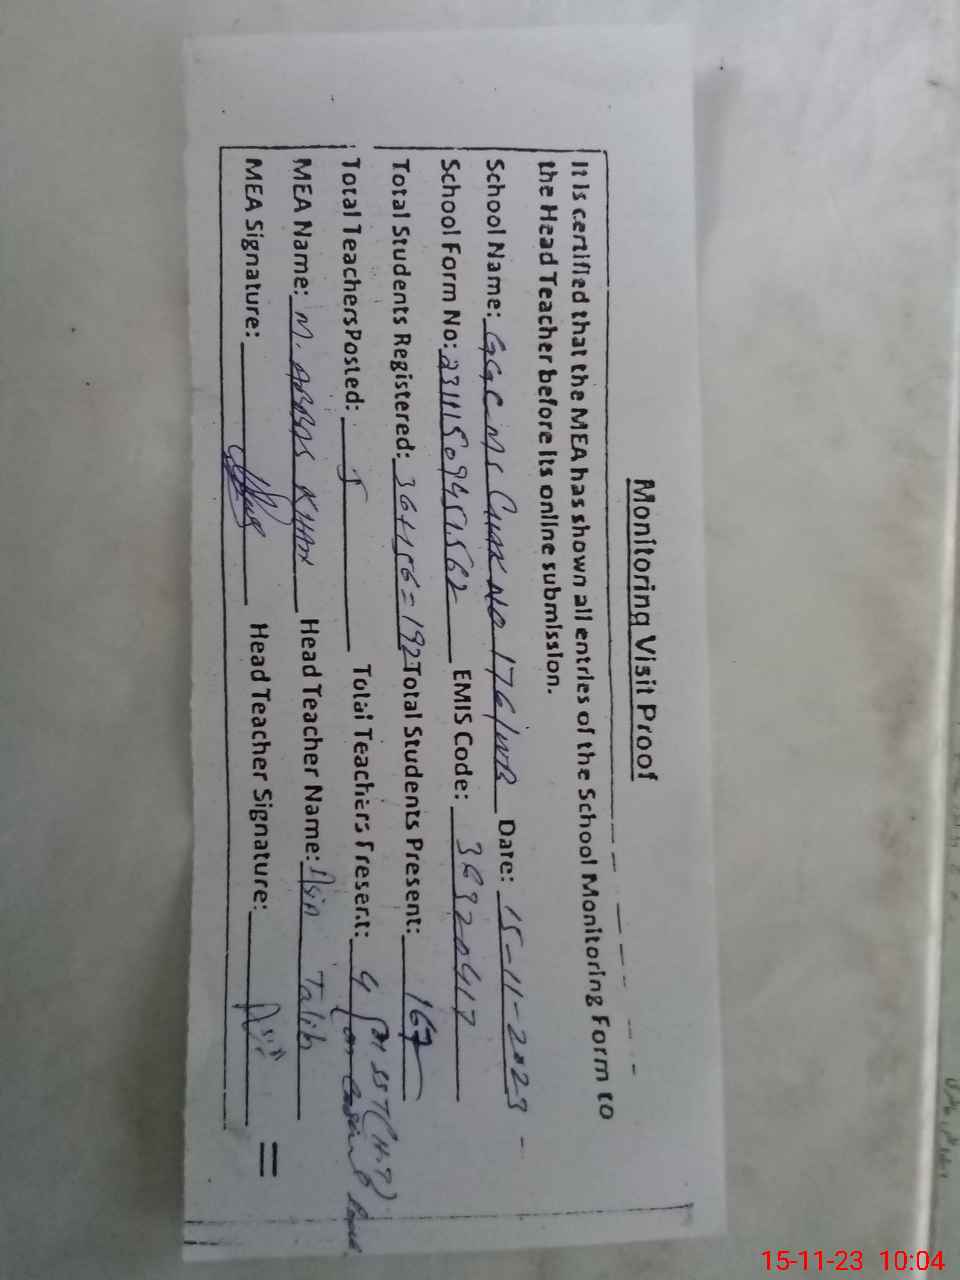 Monitoring Visit Proof
It is certified that the MEA has shown all entries of the School Monitoring Form to
the Head Teacher before its online submission.
School Name: GGCMS Chak No 176/WB Date: 15-11-2023
School Form No: EMIS Code:
Total Students Registered: 36+156=192 Total Students Present: 167
Total Teachers Posted: 5 Total Teachers Present: 4
MEA Name: M. ABBAS KHAN Head Teacher Name: Talib
MEA Signature: Head Teacher Signature:
15-11-23 10:04